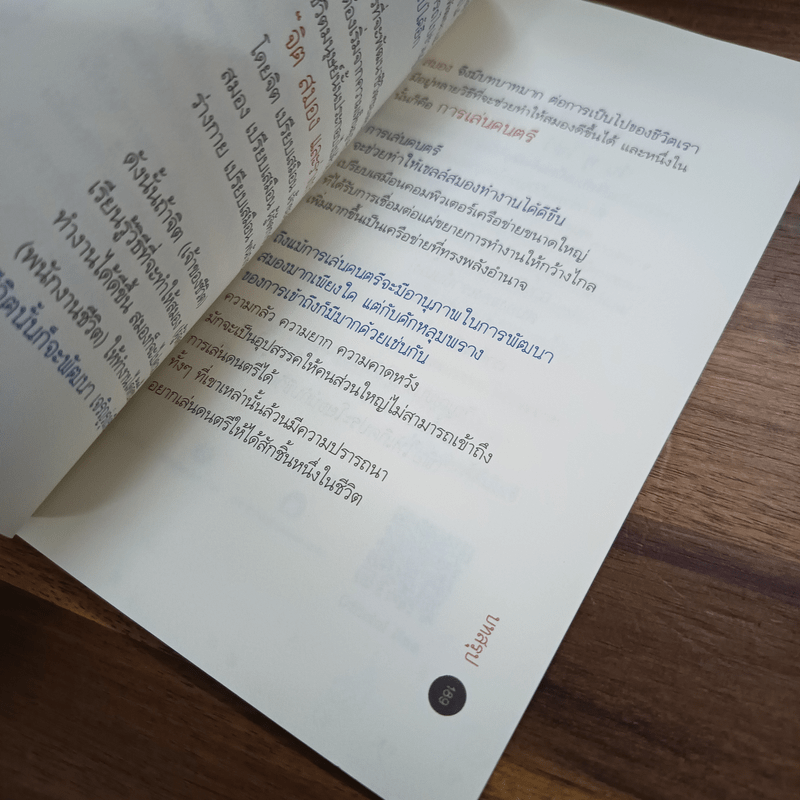 โดยจิต เปรียบเสมือน
สมอง เปรียบเสมือน
ร่างกาย เปรียบเสมือน
ดังนั้นถ้าจิต (เจ้าของชีวิต)
เรียนรู้วิธีที่จะทำให้สมอง
ทำงานได้ดีขึ้น
(พนักงานชีวิต)
ชีวิตนั้นก็จะพัฒนา
สมอง จึงมีบทบาทมาก ต่อการเป็นไปของชีวิตเรา
มีอยู่หลายวิธีที่จะช่วยทำให้สมองดีขึ้นได้ และหนึ่งใน
นั้นก็คือ การเล่นดนตรี
การเล่นดนตรี
จะช่วยทำให้เซลล์สมองทำงานได้ดีขึ้น
เปรียบเสมือนคอมพิวเตอร์เครือข่ายขนาดใหญ่
ที่ได้รับการเชื่อมต่อแผ่ขยายการทำงานให้กว้างไกล
เพิ่มมากขึ้นเป็นเครือข่ายที่ทรงพลังอำนาจ
ถึงแม้การเล่นดนตรีจะมีอานุภาพ ในการพัฒนา
สมองมากเพียงใด แต่กับดักหลุมพราง
ของการเข้าถึงก็มีมากด้วยเช่นกัน
ความกลัว ความยาก ความคาดหวัง
มักจะเป็นอุปสรรคให้คนส่วนใหญ่ไม่สามารถเข้าถึง
การเล่นดนตรีได้
ทั้งๆ ที่เขาเหล่านั้นล้วนมีความปรารถนา
อยากเล่นดนตรีให้ได้สักชิ้นหนึ่งในชีวิต
บทสรุป
189